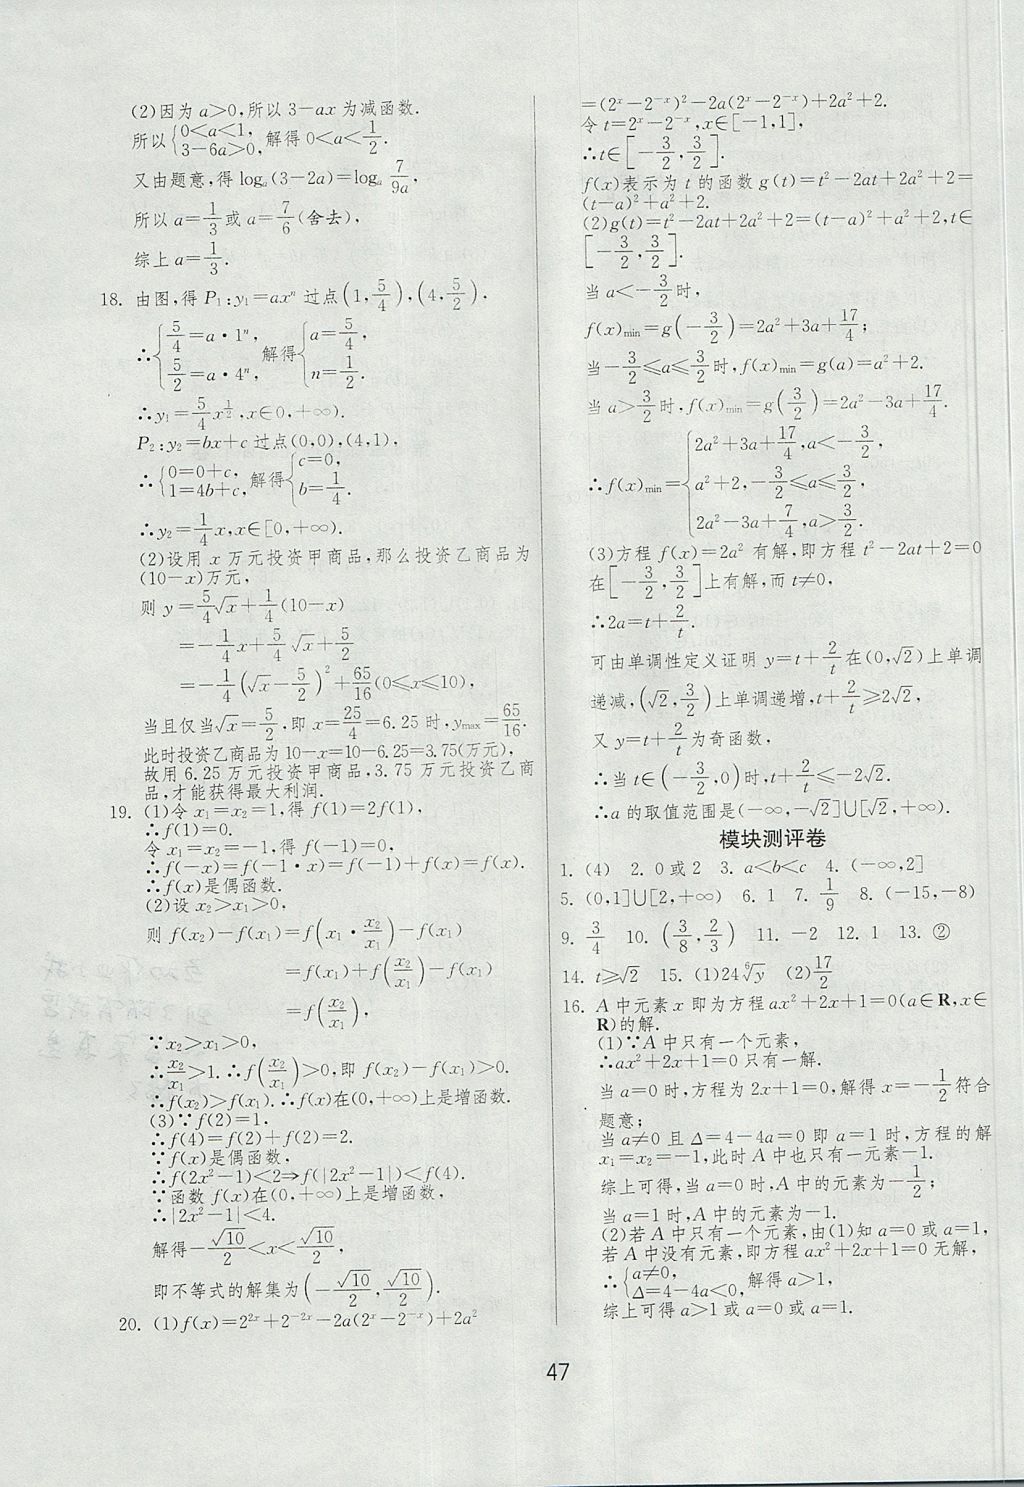 (2)因为 a>0,所以 3-ax 为减函数.
所以{0<a<1, 3-6a>0, 解得 0<a<1/2.
又由题意,得 logₐ(3-2a)=logₐ 7/(9a),
所以 a=1/3 或 a=7/6(舍去),
综上 a=1/3.
18. 由图,得 P₁:y₁=axⁿ 过点(1,5/4),(4,5/2),
∴{5/4=a·1ⁿ, 5/2=a·4ⁿ, 解得{a=5/4, n=1/2.
∴y₁=5/4 x^(1/2),x∈[0,+∞).
P₂:y₂=bx+c 过点(0,0),(4,1),
∴{0=0+c, 1=4b+c, 解得{c=0, b=1/4.
∴y₂=1/4 x,x∈[0,+∞).
(2)设用 x 万元投资甲商品,那么投资乙商品为
(10-x)万元,
则 y=5/4√x+1/4(10-x)
=-1/4 x+5/4 √x+5/2
=-1/4(√x-5/2)²+65/16(0≤x≤10),
当且仅当√x=5/2,即 x=25/4=6.25 时,y_max=65/16.
此时投资乙商品为 10-x=10-6.25=3.75(万元),
故用 6.25 万元投资甲商品,3.75 万元投资乙商
品,才能获得最大利润.
19. (1)令 x₁=x₂=1,得 f(1)=2f(1),
∴f(1)=0.
令 x₁=x₂=-1,得 f(-1)=0,
∴f(-x)=f(-1·x)=f(-1)+f(x)=f(x).
∴f(x)是偶函数.
(2)设 x₂>x₁>0,
则 f(x₂)-f(x₁)=f(x₁·x₂/x₁)-f(x₁)
=f(x₁)+f(x₂/x₁)-f(x₁)
=f(x₂/x₁),
∵x₂>x₁>0,
∴x₂/x₁>1.∴f(x₂/x₁)>0,即 f(x₂)-f(x₁)>0.
∴f(x₂)>f(x₁).∴f(x)在(0,+∞)上是增函数.
(3)∵f(2)=1.
∴f(4)=f(2)+f(2)=2.
∵f(x)是偶函数,
∴f(2x²-1)<2⇒f(|2x²-1|)<f(4).
∵函数 f(x)在(0,+∞)上是增函数,
∴|2x²-1|<4.
解得-√10/2<x<√10/2,
即不等式的解集为(-√10/2,√10/2).
20. (1)f(x)=2²ˣ+2⁻²ˣ-2a(2ˣ-2⁻ˣ)+2a²
=(2ˣ-2⁻ˣ)²-2a(2ˣ-2⁻ˣ)+2a²+2.
令 t=2ˣ-2⁻ˣ,x∈[-1,1],
∴t∈[-3/2,3/2].
f(x)表示为 t 的函数 g(t)=t²-2at+2a²+2=
(t-a)²+a²+2.
(2)g(t)=t²-2at+2a²+2=(t-a)²+a²+2,t∈
[-3/2,3/2].
当 a<-3/2时,
f(x)min=g(-3/2)=2a²+3a+17/4;
当-3/2≤a≤3/2时,f(x)min=g(a)=a²+2.
当 a>3/2时,f(x)min=g(3/2)=2a²-3a+17/4.
∴f(x)min={2a²+3a+17/4,a<-3/2,
a²+2,-3/2≤a≤3/2,
2a²-3a+7/4,a>3/2.
(3)方程 f(x)=2a² 有解,即方程 t²-2at+2=0
在[-3/2,3/2]上有解,而 t≠0,
∴2a=t+2/t.
可由单调性定义证明 y=t+2/t在(0,√2)上单调
递减,(√2,3/2)上单调递增,t+2/t≥2√2,
又 y=t+2/t为奇函数,
∴当 t∈(-3/2,0)时,t+2/t≤-2√2.
∴a 的取值范围是(-∞,-√2]∪[√2,+∞).
模块测评卷
1. (4) 2. 0或2 3. a<b<c 4. (-∞,2]
5. (0,1]∪[2,+∞) 6. 1 7. 1/9 8. (-15,-8)
9. 3/4 10. (3/8,2/3) 11. -2 12. 1 13. ②
14. t≥√2 15. (1)24⁶√y (2)17/2
16. A 中元素 x 即为方程 ax²+2x+1=0(a∈R,x∈
R)的解.
(1)∵A 中只有一个元素,
∴ax²+2x+1=0 只有一解.
当 a=0 时,方程为 2x+1=0,解得 x=-1/2符合
题意;
当 a≠0 且 Δ=4-4a=0 即 a=1 时,方程的解
x₁=x₂=-1,此时 A 中也只有一元素-1.
综上可得,当 a=0 时,A 中的元素为-1/2;
当 a=1 时,A 中的元素为-1.
(2)若 A 中只有一个元素,由(1)知 a=0 或 a=1,
若 A 中没有元素,即方程 ax²+2x+1=0 无解,
∴{a≠0, Δ=4-4a<0, 解得 a>1,
综上可得 a>1 或 a=0 或 a=1.
47